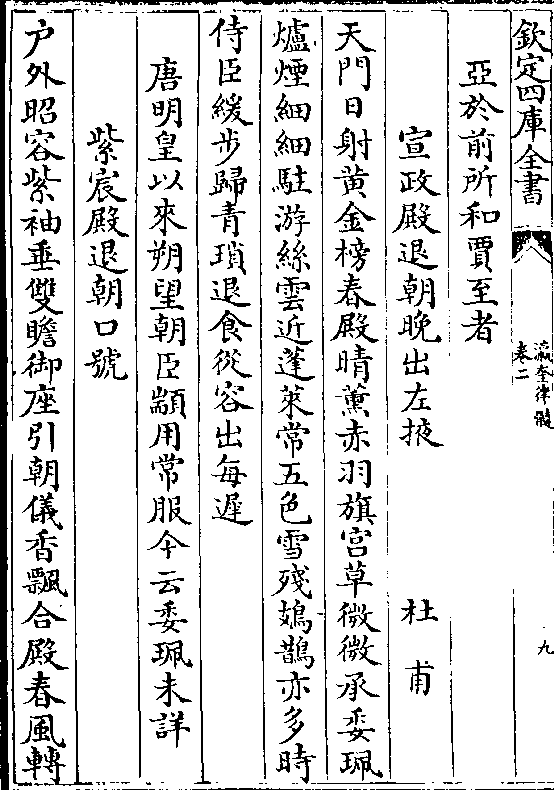 欽定四庫全書
瀛奎律髓
卷二
九
亞於前所和賈至者
宣政殿退朝晚出左掖 杜甫
天門日射黄金榜春殿晴薰赤羽旗宫草微微承委珮
爐煙細細駐游絲雲近蓬萊常五色雪殘鳷鵲亦多時
侍臣緩步歸青瑣退食從容出每遲
唐明皇以來朔望朝臣顓用常服今云委珮未詳
紫宸殿退朝口號
户外昭容紫袖垂雙瞻御座引朝儀香飄合殿春風轉